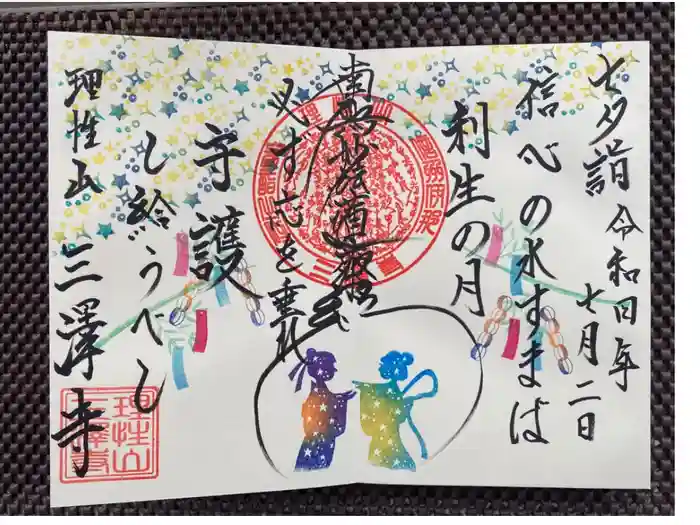 七夕詣 令和四年
七月二日
信心の水すまば
利生の月
南無妙法蓮華経
必ず応を垂れ
守護
し給うべし
理性山 三澤寺
理性山
三澤寺